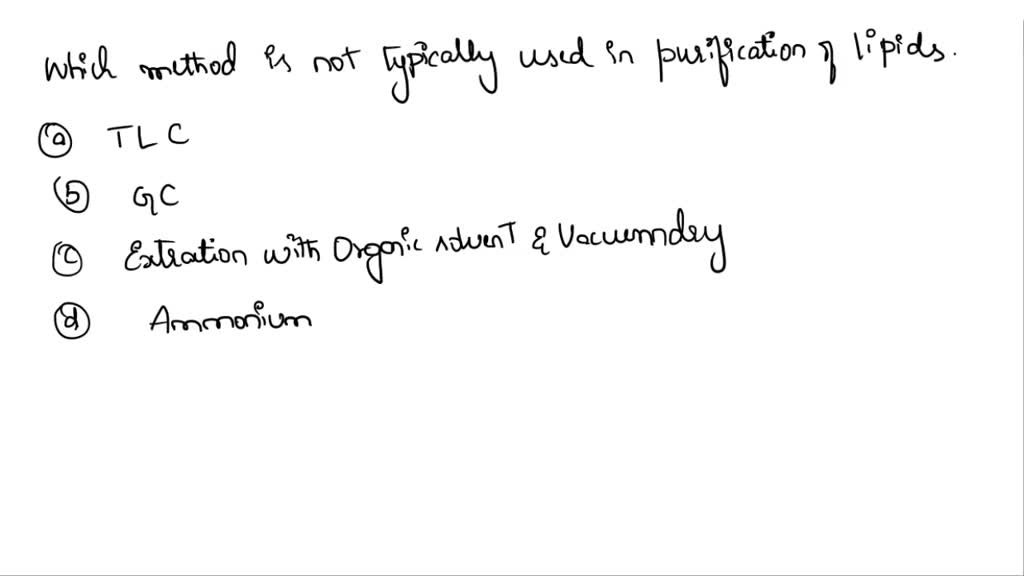 Which method is not typically used in purification of lipids.
(a) TLC
(b) GC
(c) Extration with Organic solvent & Vacuumdry
(d) Ammonium